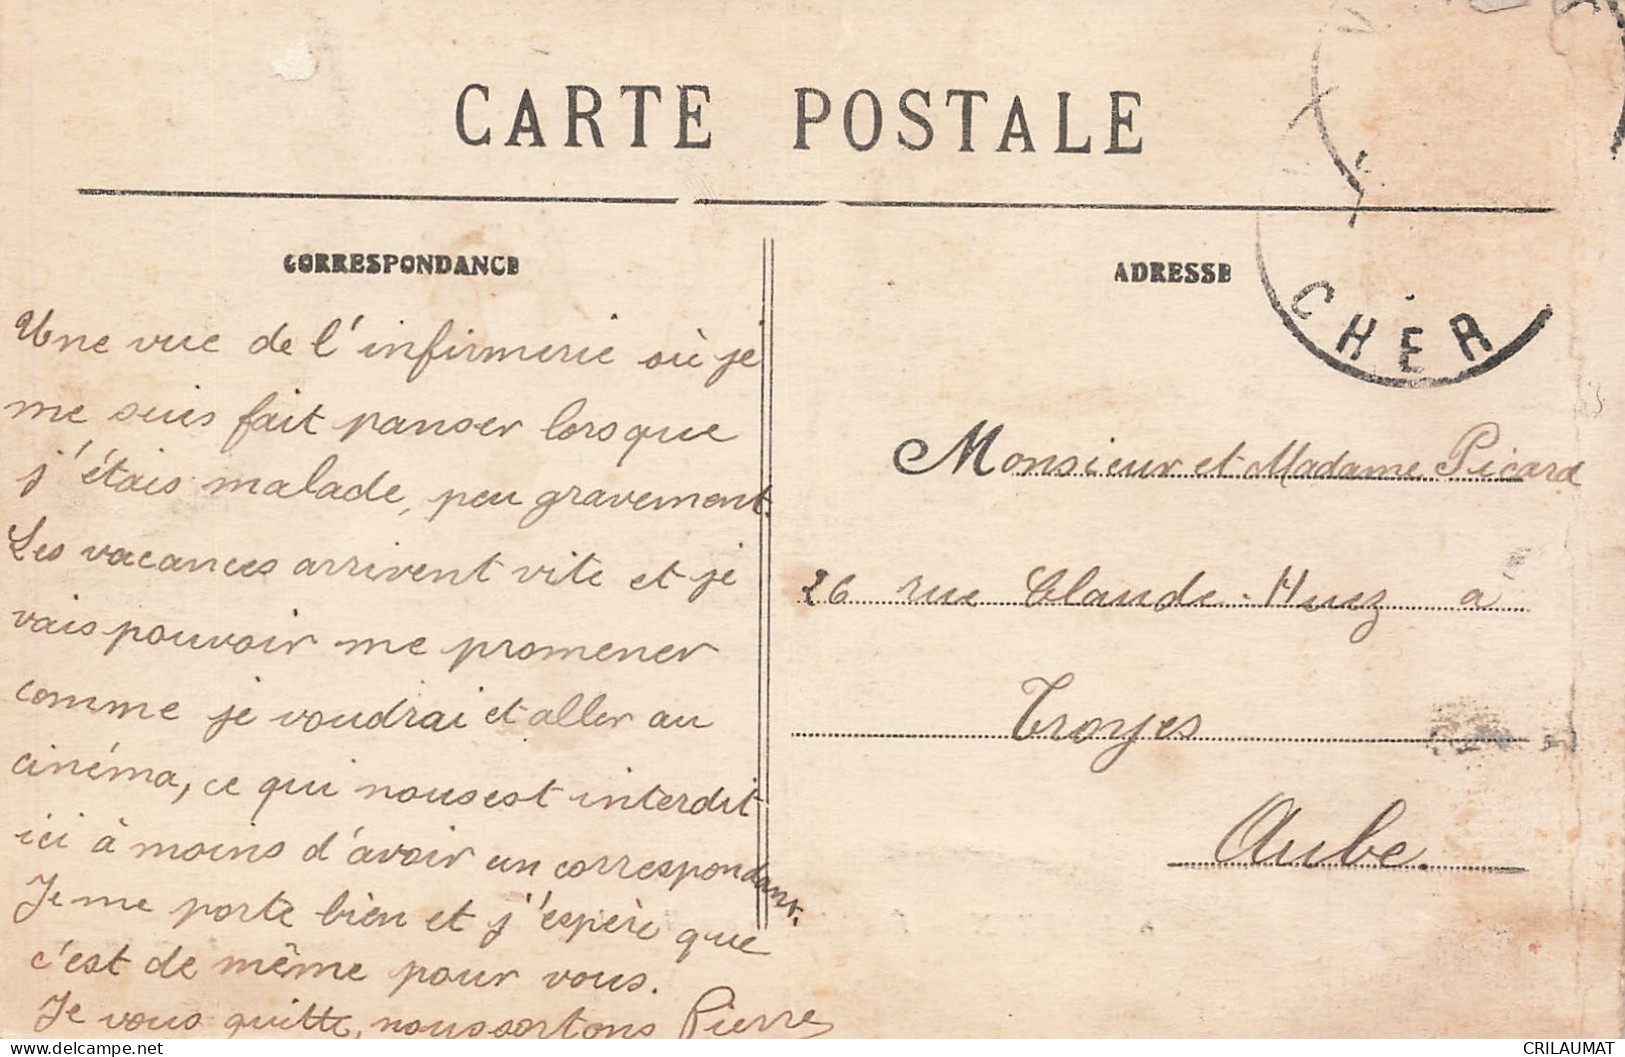 CARTE POSTALE
CORRESPONDANCE
Une vue de l'infirmerie où je
me suis fait panser lorsque
j'étais malade, peu gravement.
Les vacances arrivent vite et je
vais pouvoir me promener
comme je voudrai et aller au
cinéma, ce qui nous est interdit
ici à moins d'avoir un correspondant.
Je me porte bien et j'espère que
c'est de même pour vous.
Je vous quitte, nous sortons Pierre
ADRESSE
CHER
Monsieur et Madame Picard
26 rue Claude-Huez à
Troyes
Aube.
www.delcampe.net
CRILAUMAT